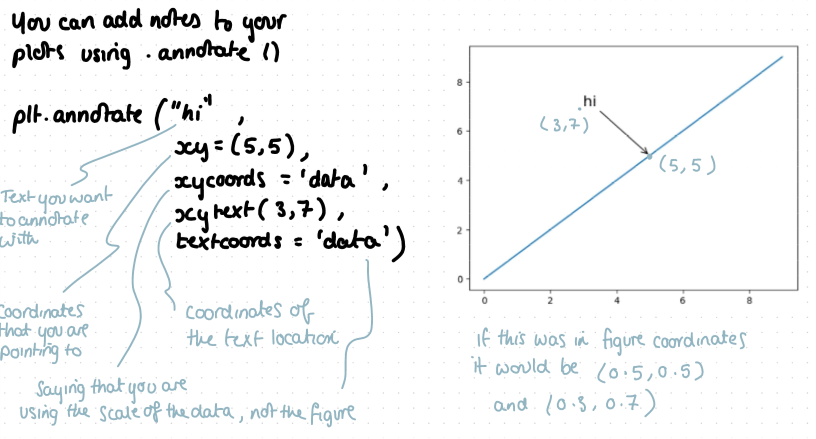 You can add notes to your
plots using .annotate ()
plt.annotate ("hi" ,
xy = (5,5) ,
xycoords = 'data' ,
xytext( 3,7) ,
textcoords = 'data')
Text you want
to annotate
with
Coordinates
that you are
pointing to
Saying that you are
using the scale of the data, not the figure
Coordinates of
the text location
hi
(3,7)
(5,5)
8
6
4
2
0
0 2 4 6 8
If this was in figure coordinates
it would be (0.5,0.5)
and (0.3, 0.7)